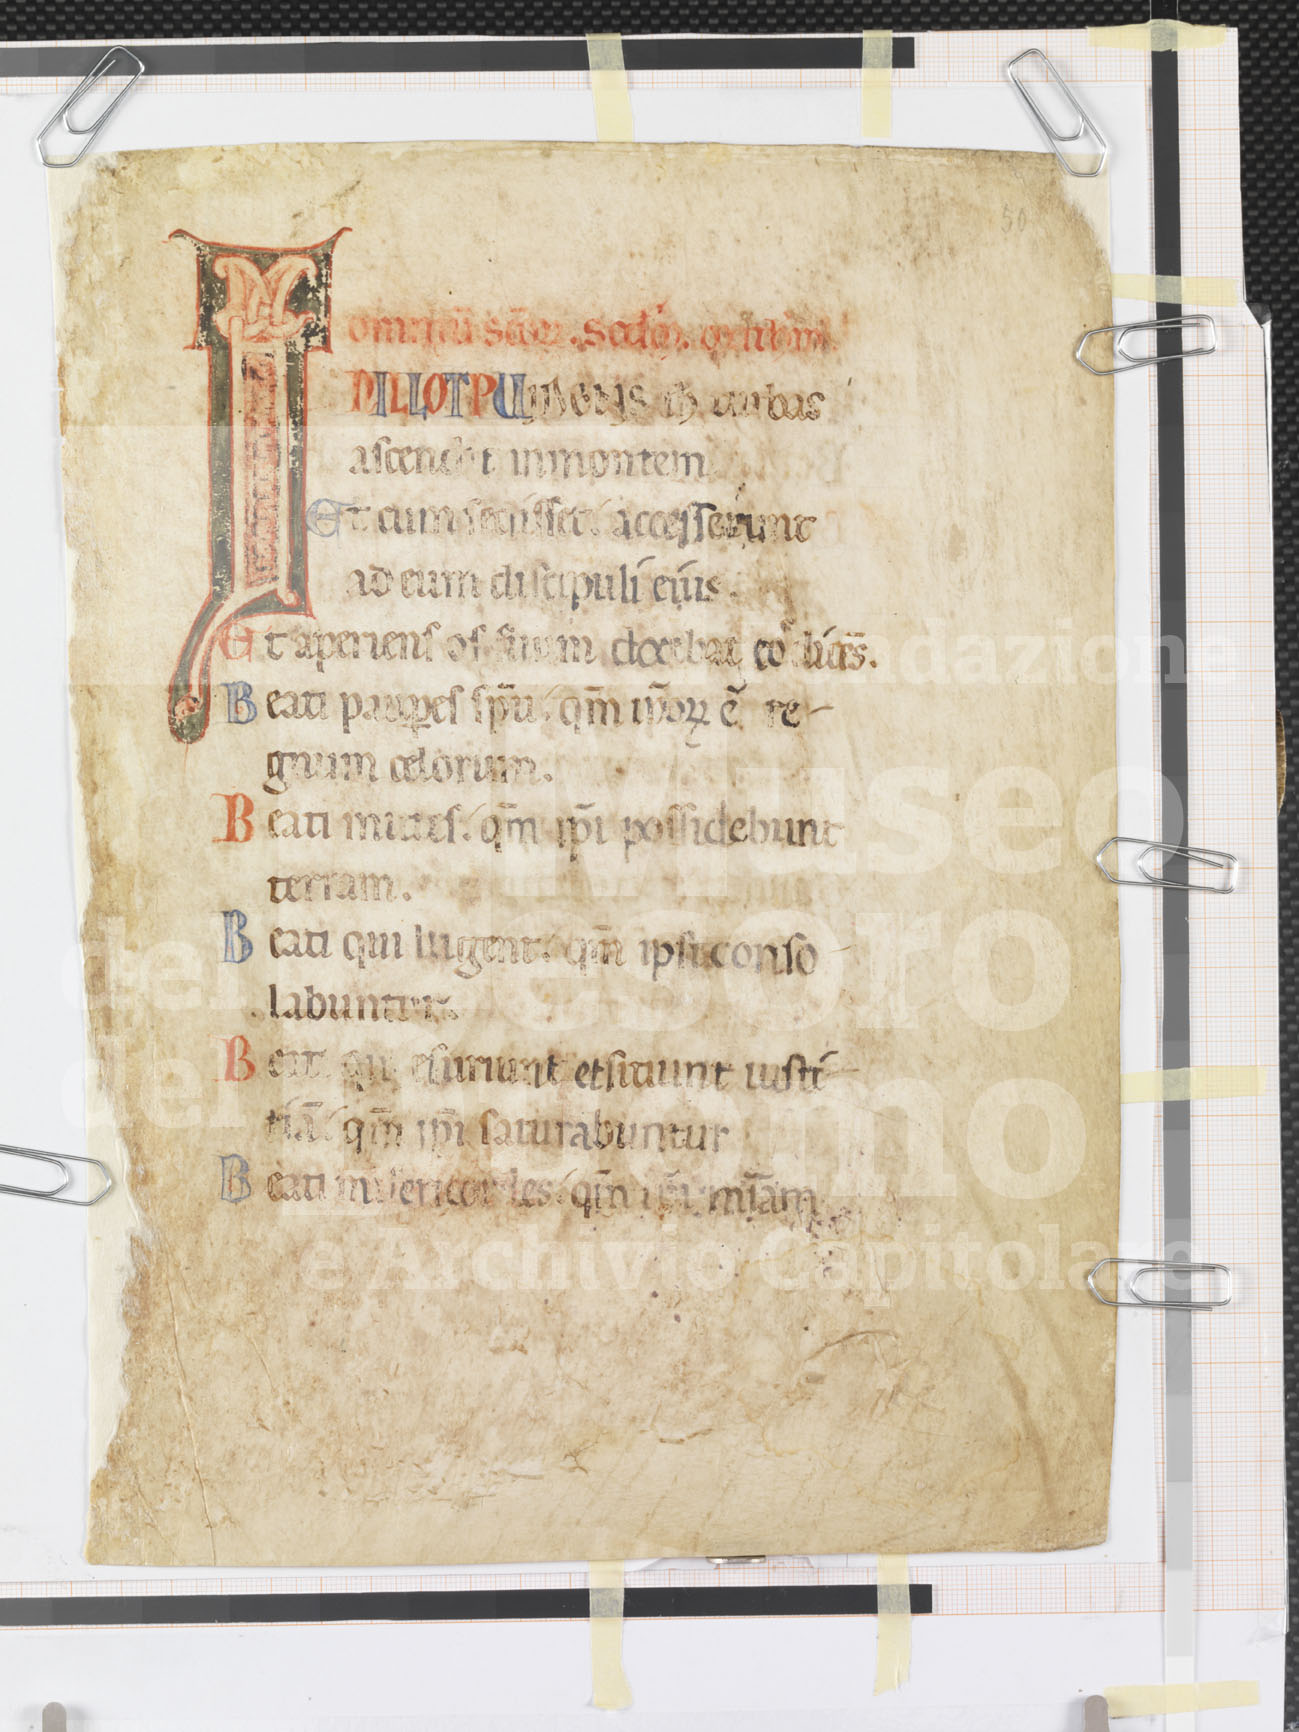 50
omniū scōꝝ. Secđm.
IN ILLO TPR Uidens ih̄s turbas
ascendit in montem
Et cum sedisset. accesserunt
ad eum discipuli eius.
Et aperiens os suum docebat eos dicēs.
Beati paupes spū. qm̄ ipōꝝ ē re-
gnum celorum.
Beati mites. qm̄ ip̄i possidebunt
terram.
Beati qui lugent. qm̄ ipsi conso-
labuntur.
Beati qui esuriunt et sitiunt iusti-
tiā. qm̄ ip̄i saturabuntur
Beati misericordes. qm̄ ip̄i mīam
Fondazione
Museo
del Tesoro
del Duomo
e Archivio Capitolare